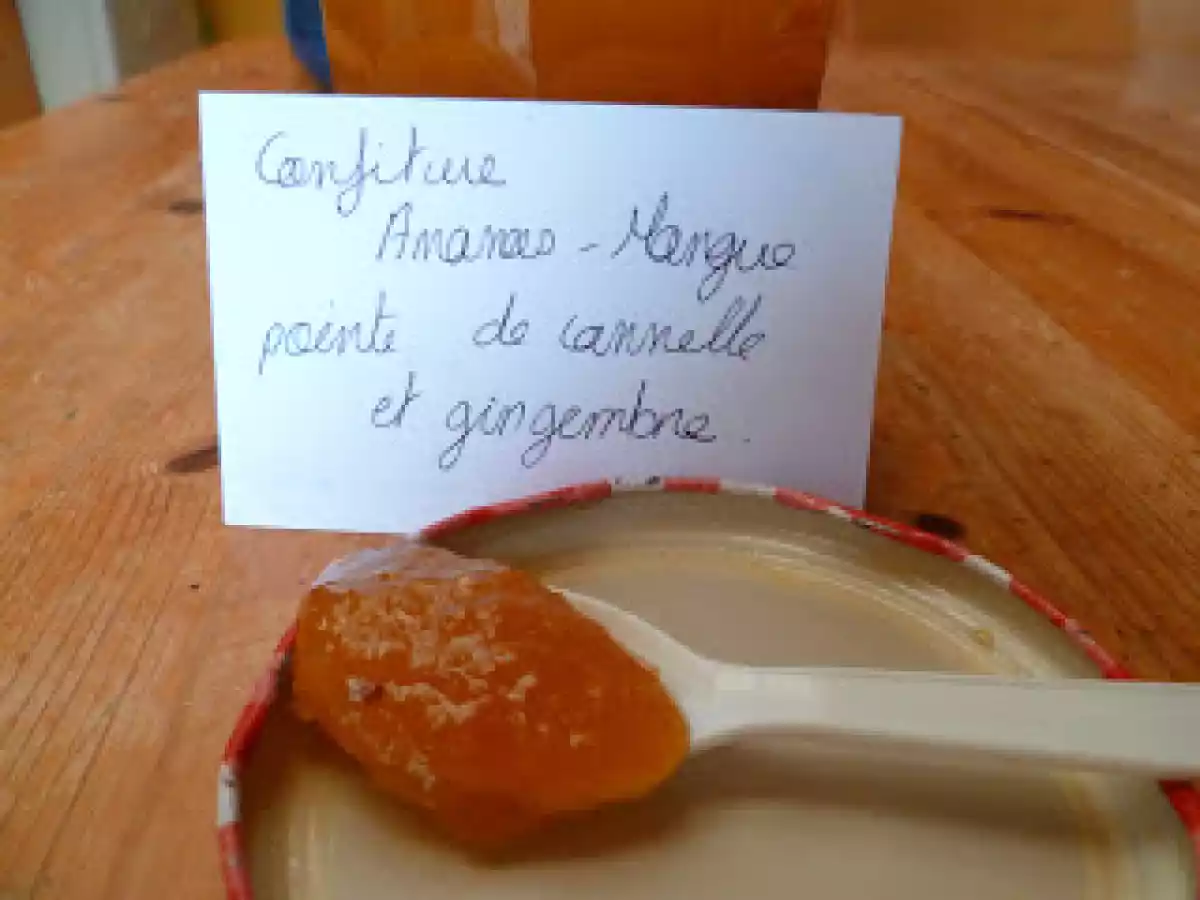 Confiture
Ananas - Mangue
pointe de cannelle
et gingembre.